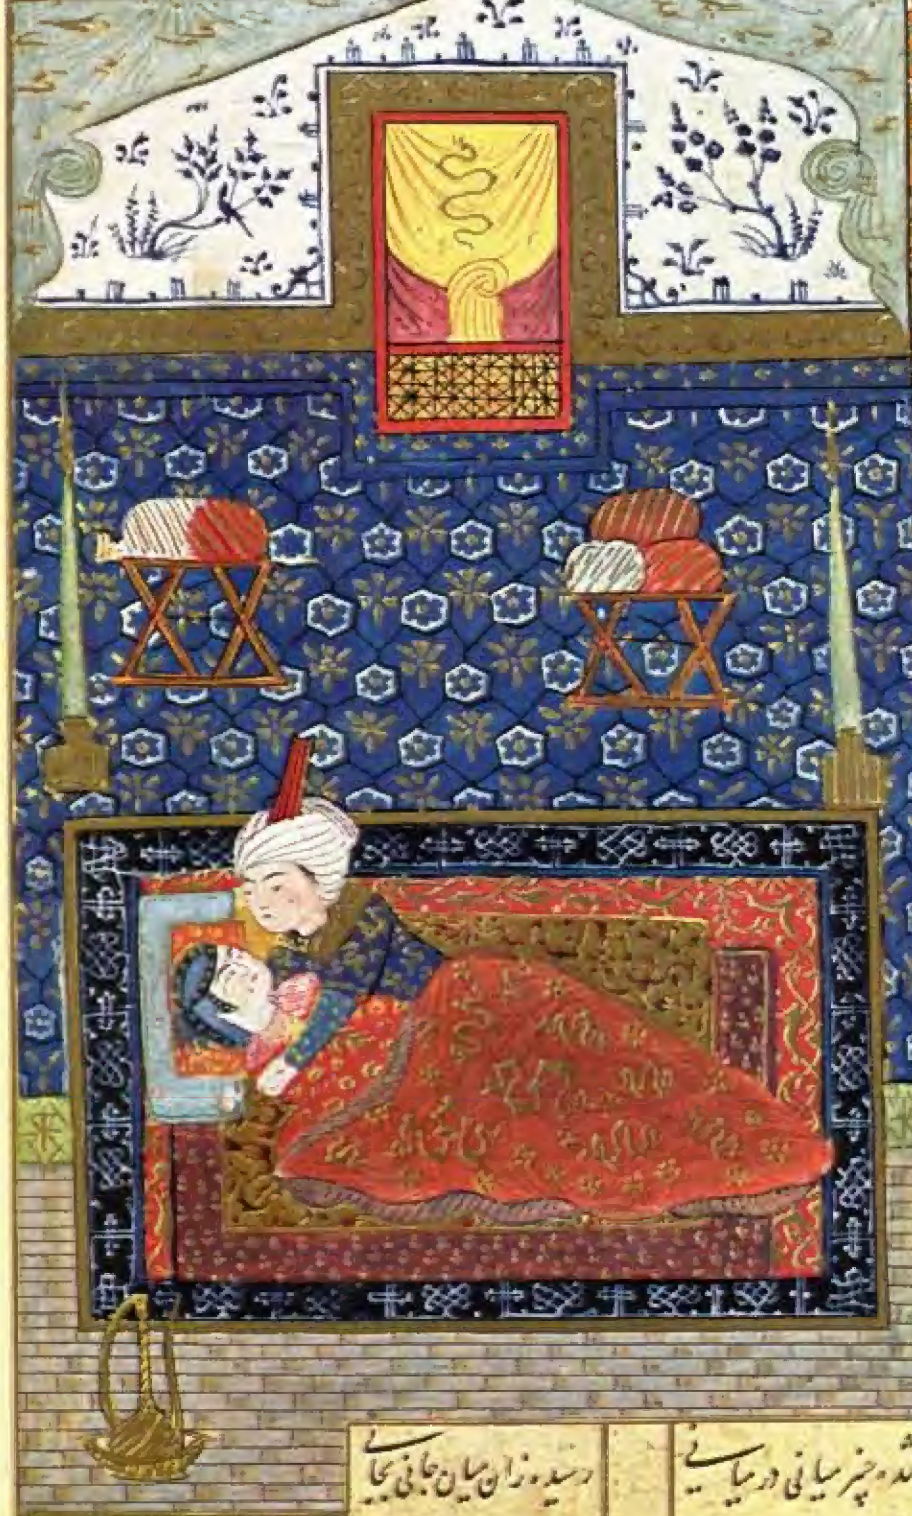 شده چنبر میانی در میانی
رسیده زان میان جانی بجانی